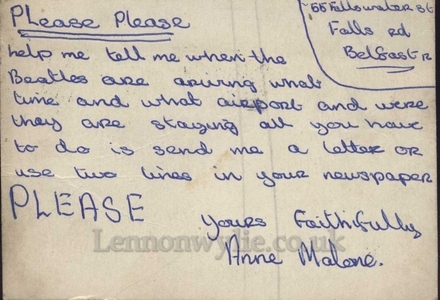 Please Please
55 Fallswater st
Falls rd
Belfast
help me tell me when the
Beatles are ariving what
time and what airport and were
they are staying all you have
to do is send me a letter or
use two lines in your newspaper
PLEASE
Yours Faithfully
Lennonwylie.co.uk
Anne Malone.